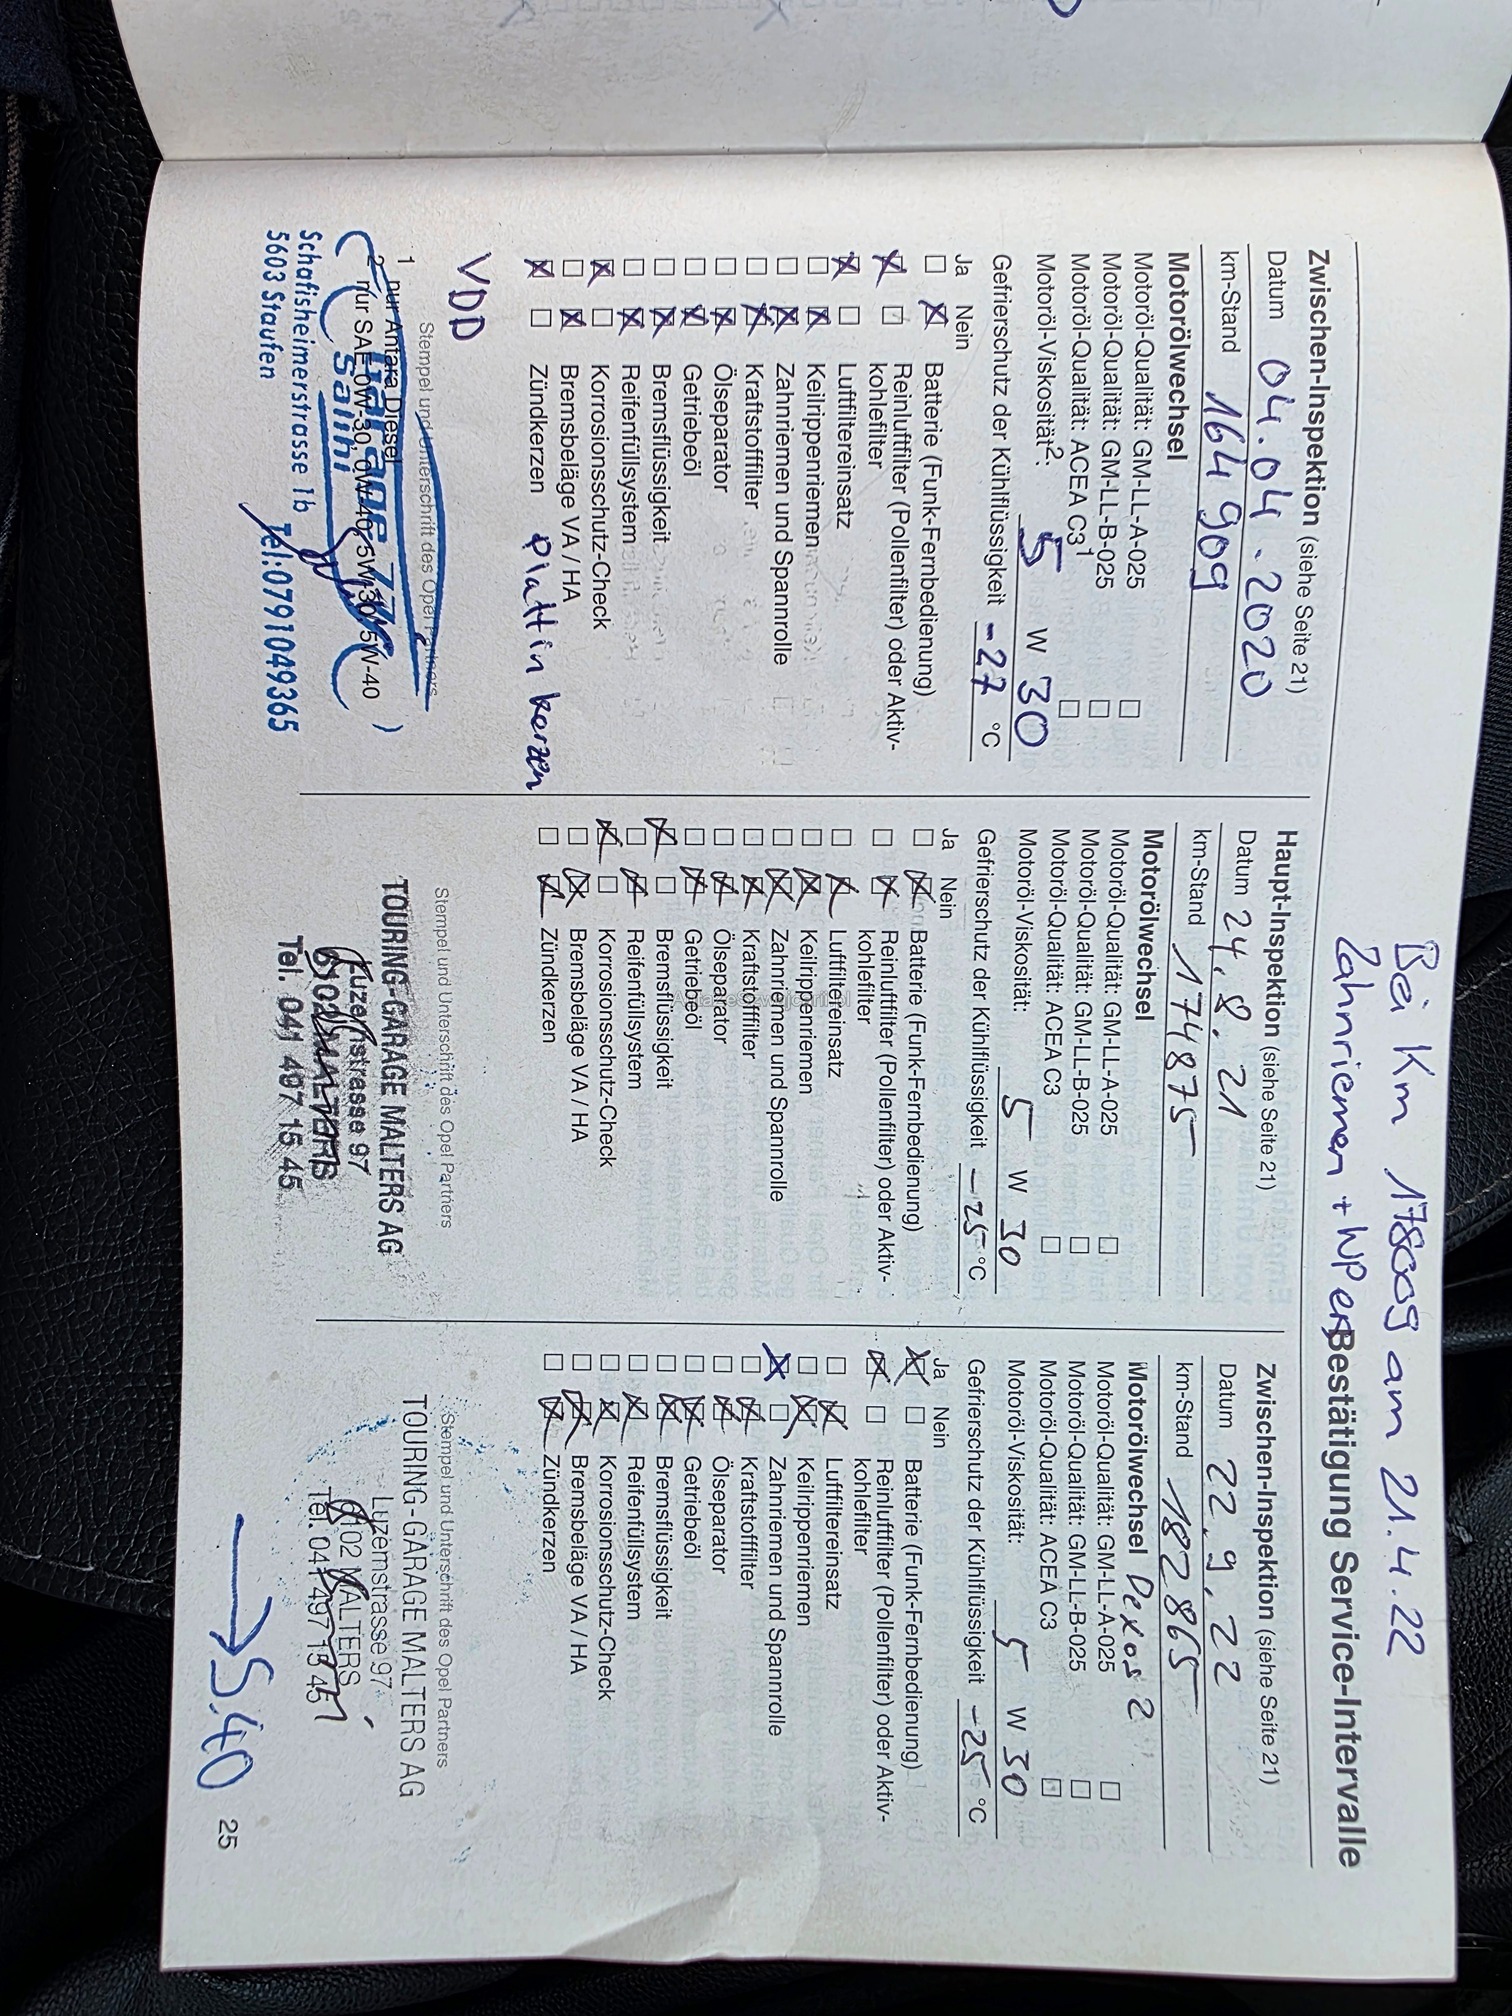 Bei Km 178009 am 21.4.22
Zahnriemen + WP
Bestätigung Service-Intervalle
Zwischen-Inspektion (siehe Seite 21)
Datum 04.04.2020
km-Stand 164909
Motorölwechsel
Motoröl-Qualität: GM-LL-A-025
Motoröl-Qualität: GM-LL-B-025
Motoröl-Qualität: ACEA C3¹
Motoröl-Viskosität²: 5 W 30
Gefrierschutz der Kühlflüssigkeit -27 °C
Ja Nein
Batterie (Funk-Fernbedienung)
Reinluftfilter (Pollenfilter) oder Aktiv-
kohlefilter
Luftfiltereinsatz
Keilrippenriemen
Zahnriemen und Spannrolle
Kraftstofffilter
Ölseparator
Getriebeöl
Bremsflüssigkeit
Reifenfüllsystem
Korrosionsschutz-Check
Bremsbeläge VA / HA
Zündkerzen Plattin kerzen
VDD
Stempel und Unterschrift des Opel Partners
1 nur Antara Diesel
2 nur SAE 0W-30, 0W-40, 5W-30, 5W-40
Garage
Salihi
Schafisheimerstrasse 1b
5603 Staufen Tel:0791049365
Haupt-Inspektion (siehe Seite 21)
Datum 24.8.21
km-Stand 174875
Motorölwechsel
Motoröl-Qualität: GM-LL-A-025
Motoröl-Qualität: GM-LL-B-025
Motoröl-Qualität: ACEA C3
Motoröl-Viskosität: 5 W 30
Gefrierschutz der Kühlflüssigkeit -25 °C
Ja Nein
Batterie (Funk-Fernbedienung)
Reinluftfilter (Pollenfilter) oder Aktiv-
kohlefilter
Luftfiltereinsatz
Keilrippenriemen
Zahnriemen und Spannrolle
Kraftstofffilter
Ölseparator
Getriebeöl
Bremsflüssigkeit
Reifenfüllsystem
Korrosionsschutz-Check
Bremsbeläge VA / HA
Zündkerzen
Stempel und Unterschrift des Opel Partners
TOURING-GARAGE MALTERS AG
Luzernstrasse 97
6102 MALTERS
Tel. 041 497 15 45
Zwischen-Inspektion (siehe Seite 21)
Datum 22.9.22
km-Stand 182865
Motorölwechsel Dexos 2
Motoröl-Qualität: GM-LL-A-025
Motoröl-Qualität: GM-LL-B-025
Motoröl-Qualität: ACEA C3
Motoröl-Viskosität: 5 W 30
Gefrierschutz der Kühlflüssigkeit -25 °C
Ja Nein
Batterie (Funk-Fernbedienung)
Reinluftfilter (Pollenfilter) oder Aktiv-
kohlefilter
Luftfiltereinsatz
Keilrippenriemen
Zahnriemen und Spannrolle
Kraftstofffilter
Ölseparator
Getriebeöl
Bremsflüssigkeit
Reifenfüllsystem
Korrosionsschutz-Check
Bremsbeläge VA / HA
Zündkerzen
Stempel und Unterschrift des Opel Partners
TOURING-GARAGE MALTERS AG
Luzernstrasse 97
6102 MALTERS
Tel. 041 497 15 45
→ S.40
25